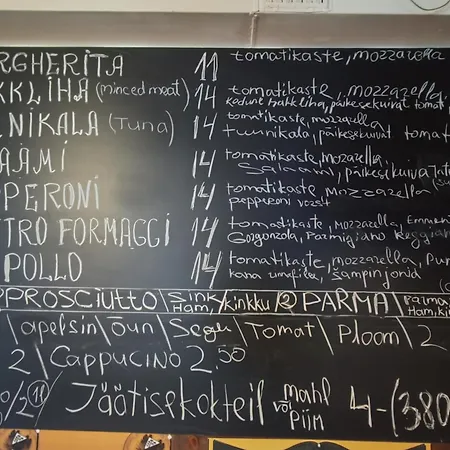 RGHERITA 11 tomatikaste, mozzarella
KKLIHA (minced meat) 14 tomatikaste, mozzarella,
kodune hakkliha, päikesekuivat tomat
NIKALA (Tuna) 14 tomatikaste, mozzarella,
tuunikala, päikesekuivat tomat
AMI 14 tomatikaste, mozarella,
Salaami, päikesekuivat
PERONI 14 tomatikaste mozzarella
pepperoni vorst
TRO FORMAGGI 14 tomatikaste, mozzarella, Emment
Gorgonzola, Parmigiano Reggian
POLLO 14 tomatikaste, mozarella,
kana šampinjonid
PROSCIUTTO \ SINK/ Ham, kinkku 2 PARMA \ Parma Ham, ki
\ apelsin \ õun \ Segu \ Tomat \ Ploom \ 2
2 \ CAPPUCINO 2.50
Jäätisekokteil mahl või PIIM 4-(380